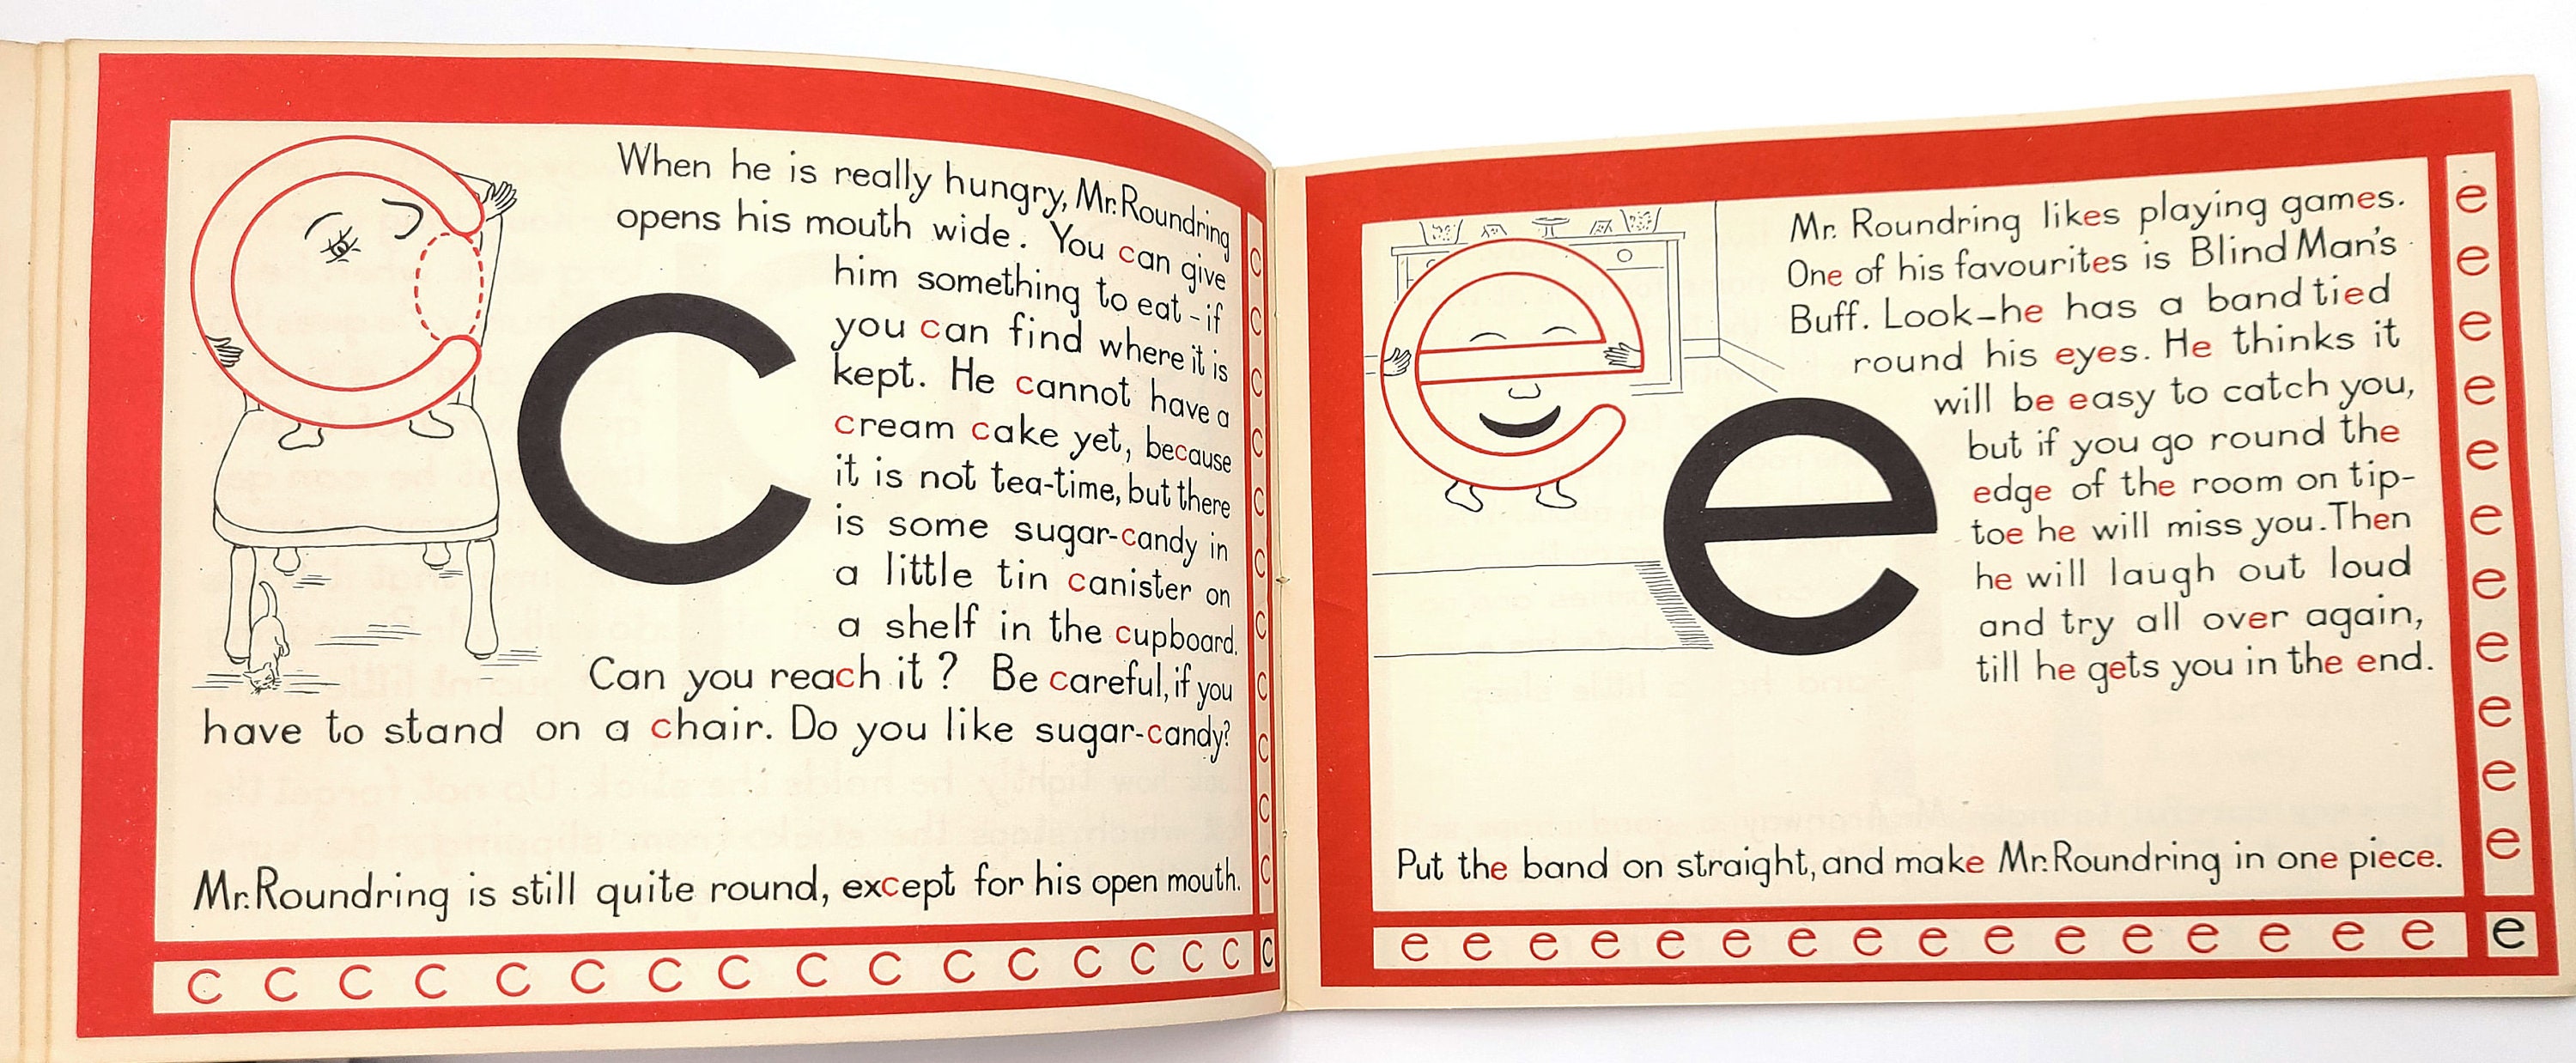 When he is really hungry, Mr. Roundring
opens his mouth wide. You can give
him something to eat - if
you can find where it is
kept. He cannot have a
cream cake yet, because
it is not tea-time, but there
is some sugar-candy in
a little tin canister on
a shelf in the cupboard.
Can you reach it? Be careful, if you
have to stand on a chair. Do you like sugar-candy?
c
Mr. Roundring is still quite round, except for his open mouth.
c
c
c
c
c
c
c
c
c
c
c
c c c c c c c c c c c c c c c c
Mr. Roundring likes playing games.
One of his favourites is Blind Man's
Buff. Look-he has a band tied
round his eyes. He thinks it
will be easy to catch you,
but if you go round the
edge of the room on tip-
toe he will miss you. Then
he will laugh out loud
and try all over again,
till he gets you in the end.
e
e
Put the band on straight, and make Mr. Roundring in one piece.
e
e
e
e
e
e
e
e
e
e
e
e e e e e e e e e e e e e e e e e